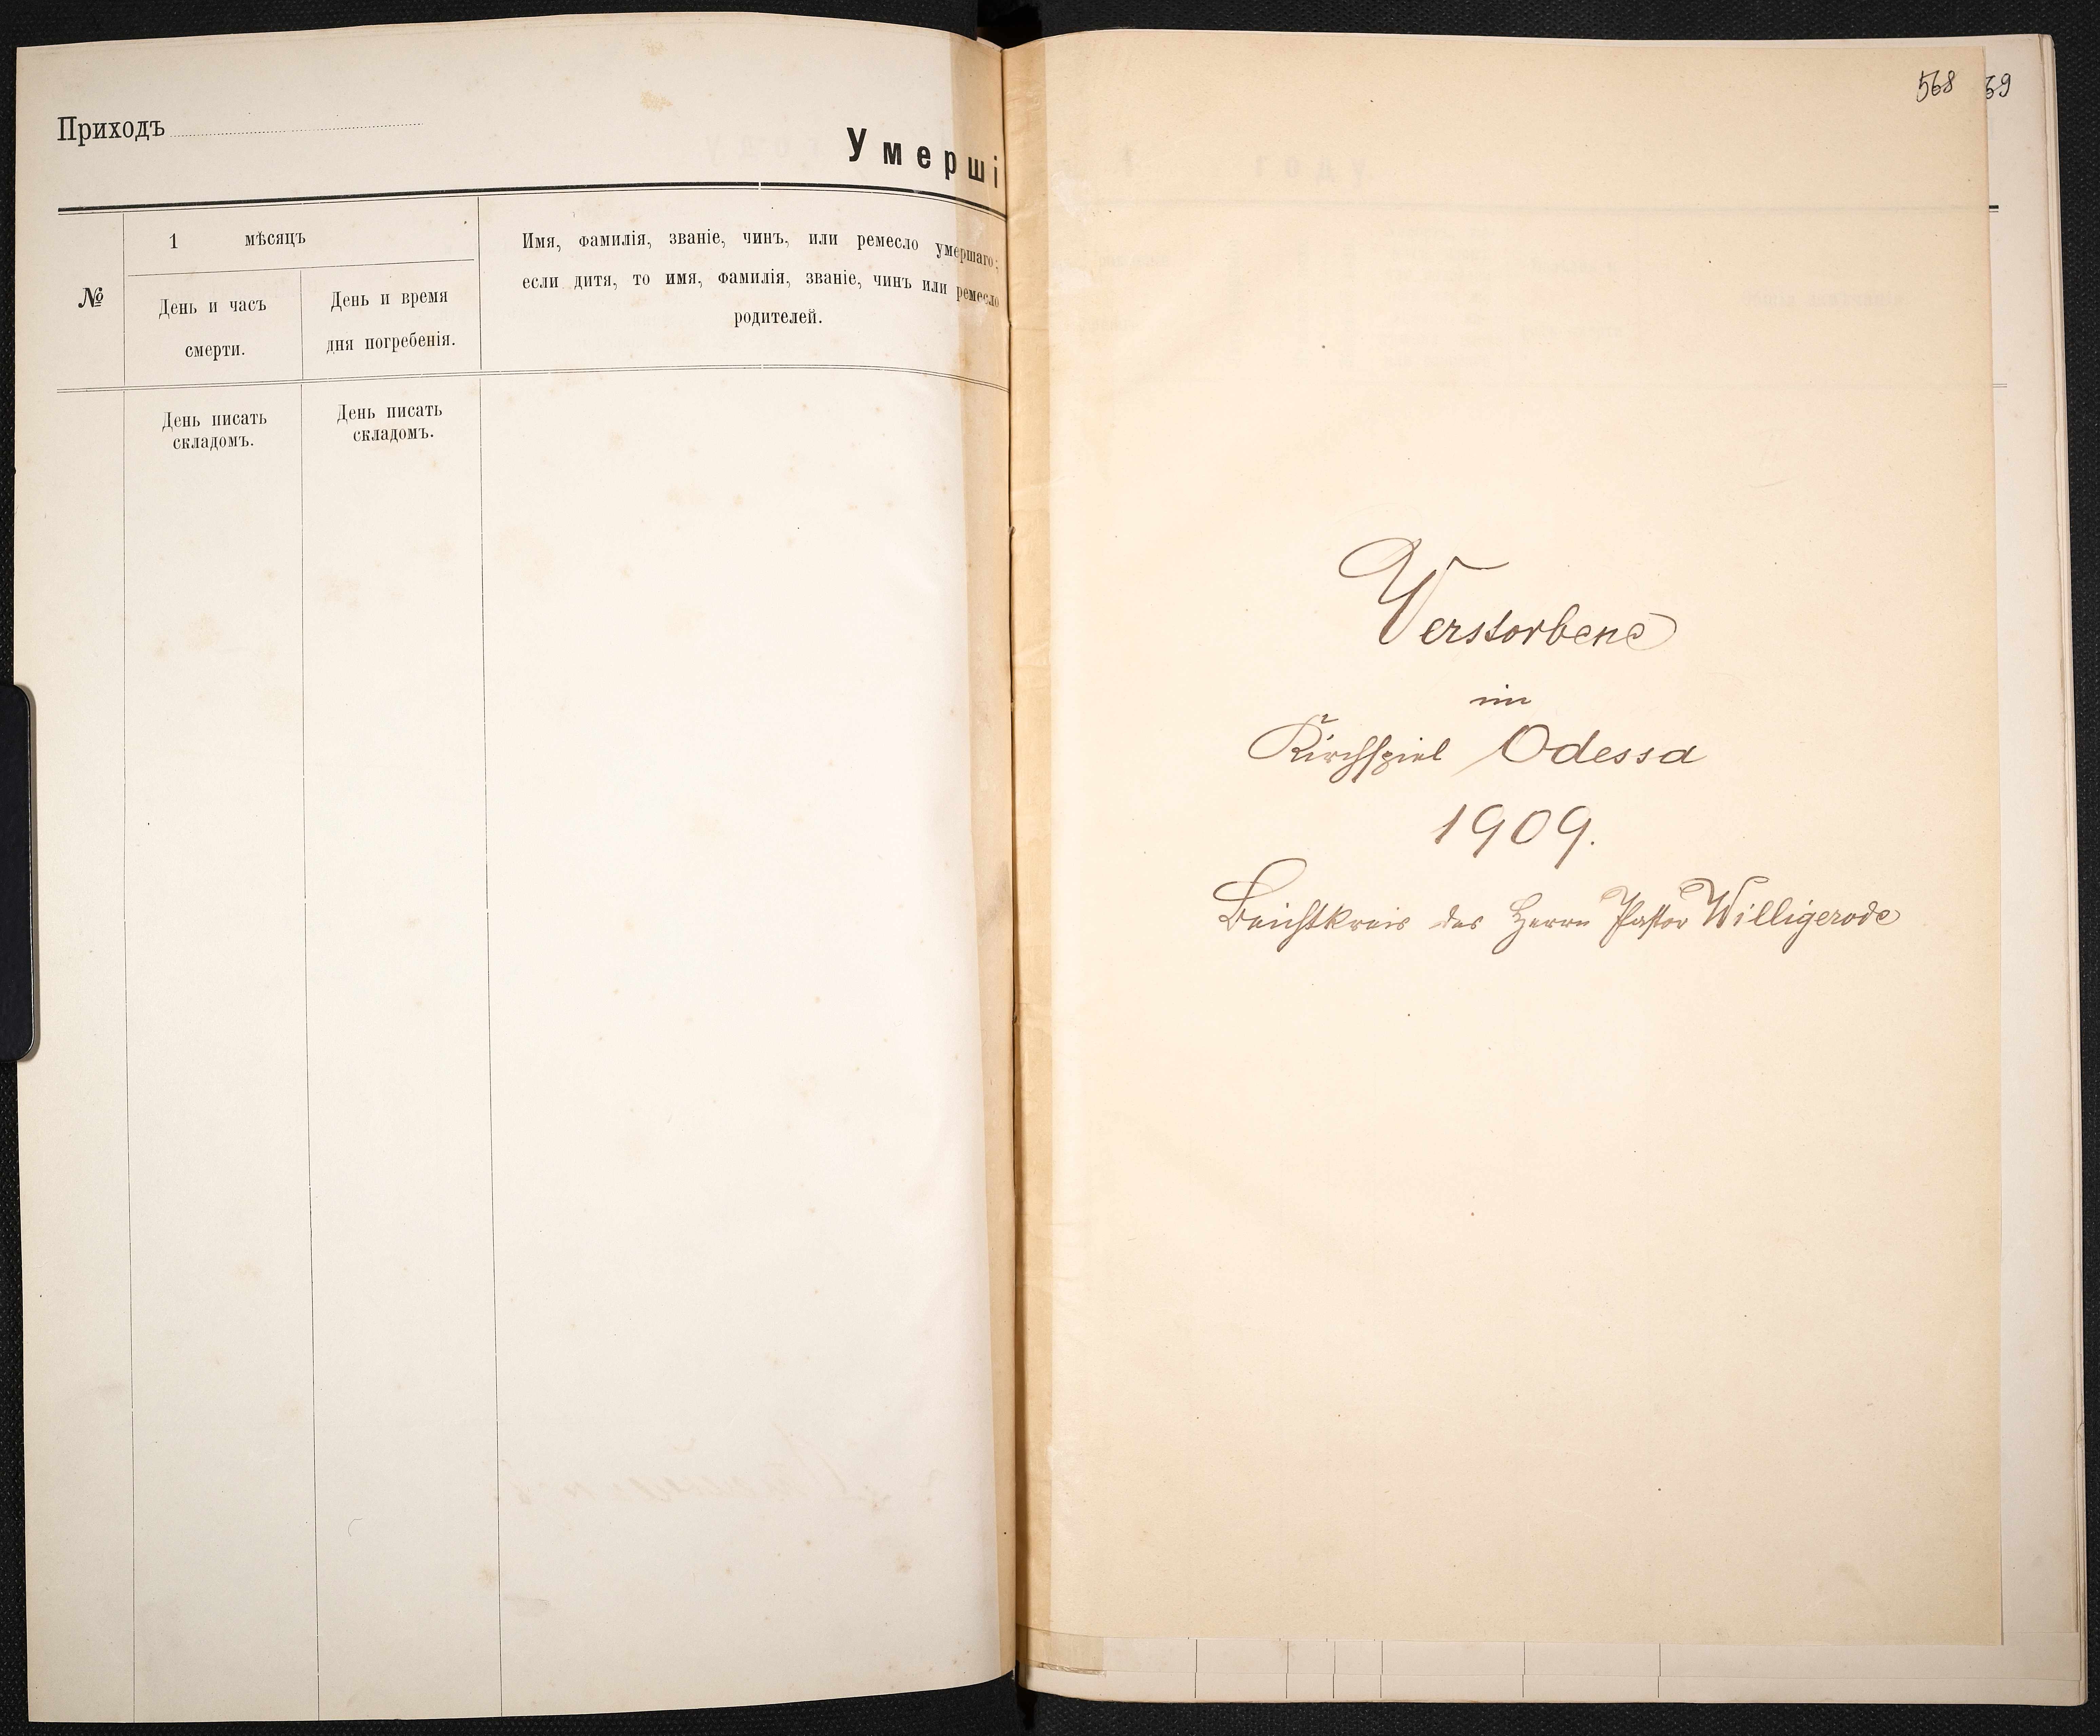 Приходъ
Умерші
№
1 мѣсяцъ
День и часъ
смерти.
День и время
дня погребенія.
Имя, фамилія, званіе, чинъ, или ремесло умершаго;
если дитя, то имя, фамилія, званіе, чинъ или ремесло
родителей.
День писать
складомъ.
День писать
складомъ.
568
69
Verstorbene
im
Kirchspiel Odessa
1909.
Beichtkreis des Herrn Pastor Willigerode